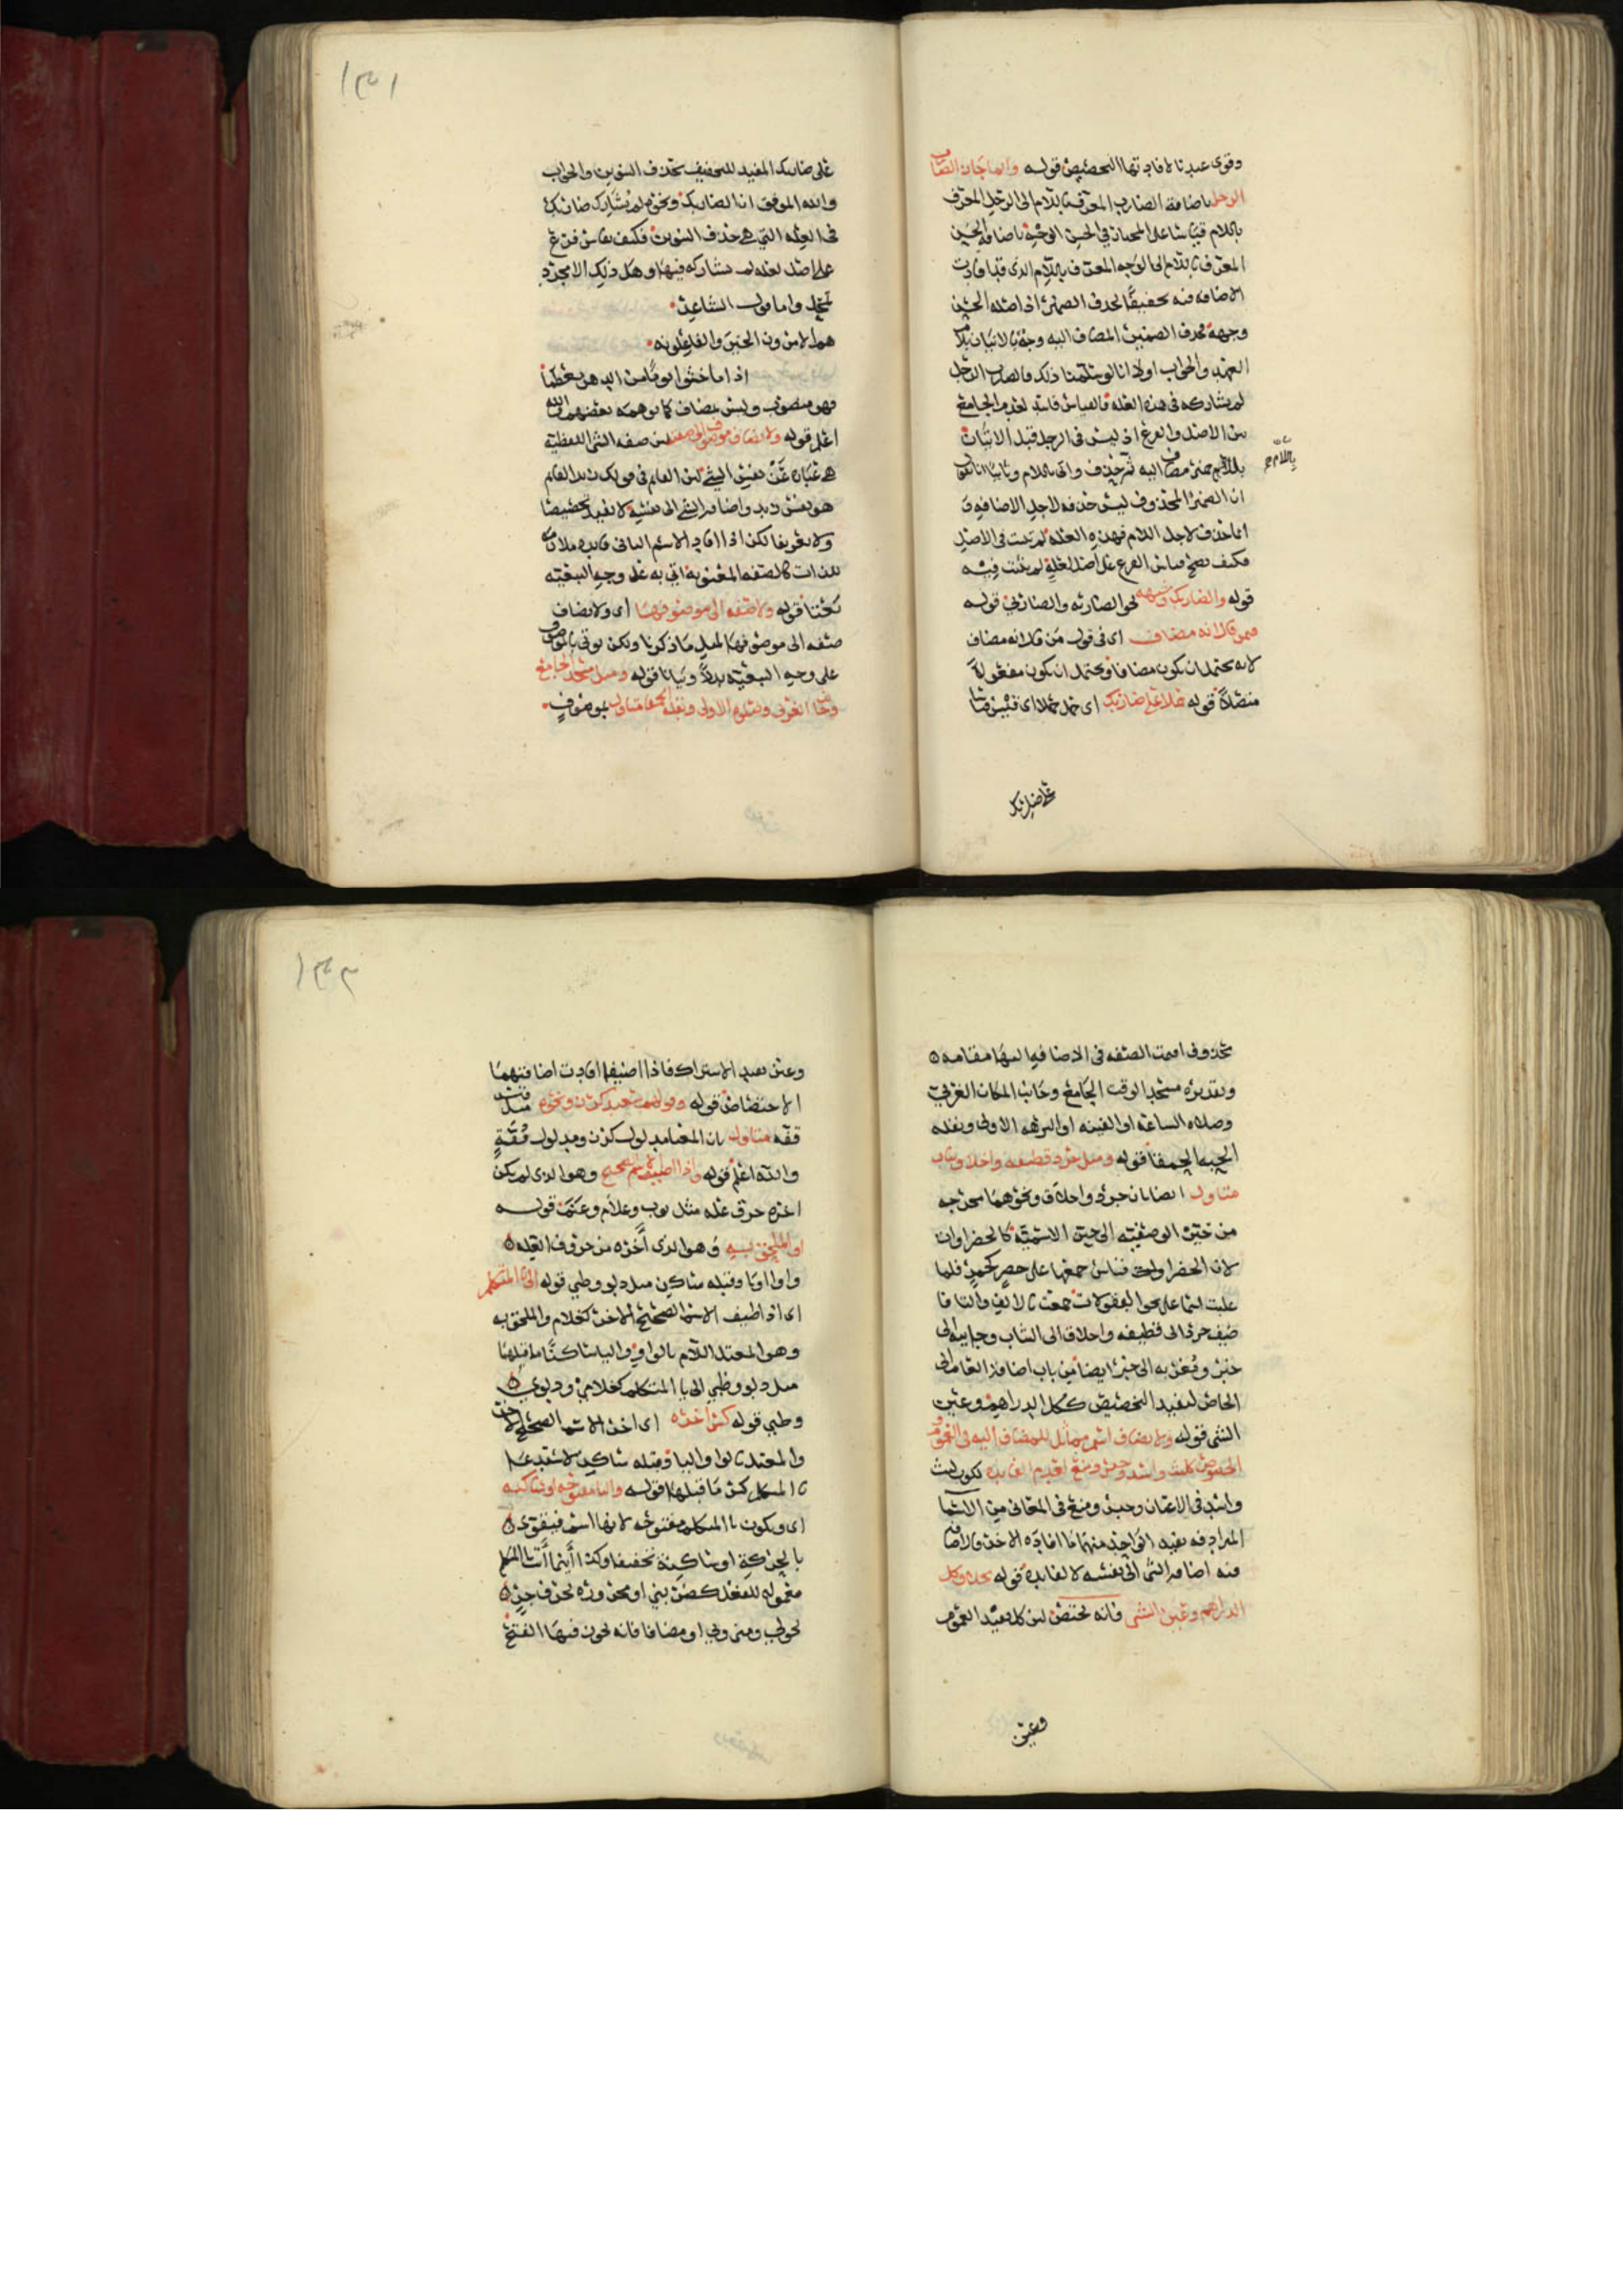 وقوى عندنا لافادتها التخصيص قوله وانما جاز الضارب
الرجل باضافة الضارب المعرف باللام الى الرجل المعرف
باللام قياسا على المختار في الحسن الوجه باضافة الحسن
المعرف باللام الى الوجه المعرف باللام الذي قد افادت
الاضافه فيه تخفيفا لحذف الضمير اذ اصله الحسن
وجهه فحذف الضمير المضاف اليه وجه بالاتيان بلام
العهد والجواب اولا انا لو سلمنا ذلك فالضارب الرجل
لم يشاركه في هذه العله فالقياس فاسد لعدم الجامع
بين الاصل والفرع اذ ليس في الرجل قبل الاتيان
باللام ضمير مضاف اليه ثم حذف واتى باللام وثانيا انا نقول
باللام
ان الضمير المحذوف ليس حذفه لاجل الاضافه
انما حذف لاجل اللام فهذه العله لم تثبت في الاصل
فكيف يصح قياس الفرع على اصل لعلة لم تثبت فيه
قوله والضاربك وشبهه نحو الضاربه والضاربي قوله
فيمن قال انه مضاف اى في قول من قال انه مضاف
لانه يحتمل ان يكون مضافا ويحتمل ان يكون مفعولا
متصلا قوله حملا على ضاربك اى حمل حملا اى قيس قياسا
على ضاربك
١٣١
على ضاربك المفيد للتخفيف بحذف التنوين والجواب
والله الموفق ان الضاربك ونحوه لم يشارك ضاربك
في العله التي هي حذف التنوين فكيف يقاس فرع
على اصل لعله لم يشاركه فيها وهل ذلك الا مجرد
تمحل واما قول الشاعر
هم الامرون الخير والفاعلونه
اذا ما خشوا يوما من الدهر معظما
فهو منصوب وليس بمضاف كما توهمه بعضهم والله
اعلم قوله ولا يضاف موصوف الى صفته لان صفه الشي اللفظيه
هي عباره عن نفس الشي لان العالم في قولك زيد العالم
هو نفس زيد واضافه الشي الى نفسه لا تفيد تخصيصا
ولا تعريفا لكن اذا افاد الاسم الثاني فايده
للذات كالصفه المعنويه اتي به على وجه التبعيه
نحتا قوله ولا صفه الى موصوفها اى ولا يضاف
صفه الى موصوفها لمثل ما ذكرنا ولكن يوتى بالموصوف
على وجه التبعيه بدلا وبيانا قوله ومثل مسجد الجامع
وجانب الغربي وصلوه الاولى وبقله الحمقا متاول بموصوف
محذوف اقيمت الصفه في الاضافه اليها مقامه
وتقديره مسجد الوقت الجامع وجانب المكان الغربي
وصلاه الساعه او الفينه او البرهه الاولى وبقله
الحبه الحمقا قوله ومثل جرد قطيفه واخلاق ثياب
متاول ايضا بان جرد واخلاق ونحوهما مخرجه
من حيز الوصفيه الى حيز الاسميه كالخضراوات
لان الخضراوات قياس جمعها على خضر كحمر فلما
غلبت اسما على نحو البقولات جمعت بالالف والتا
ضيف جرد الى قطيفه واخلاق الى الثياب وجايبه الى
خبر ومغربه الى خبر ايضا من باب اضافه العام الى
الخاص لتفيد التخصيص ككل الدراهم وعين
الشي قوله ولا يضاف اسم مماثل للمضاف اليه في العموم
والخصوص كليث واسد وحبس ومنع لعدم الفايده لكون ليث
واسد في الاعيان وحبس ومنع في المعاني من الاسما
المترادفه يفيد الواحد منهما ما افاده الاخر فالاضافه
فيه اضافه الشي الى نفسه لا لفايده قوله بخلاف كل
الدراهم وعين الشي فانه يختص لان كل يفيد العموم
وعين
١٣٢
وعين يفيد الاشتراك فاذا اضيفا افادت اضافتهما
الاختصاص قوله وقولهم سعيد كرز ونحوه مثل قيس
قفه متاول بان المعنا مدلول كرز ومدلول قفة
والله اعلم قوله واذا اضيف الاسم الصحيح وهو الذي لم يكن
اخره حرف عله مثل ثوب وغلام وغنم قوله
او الملحق به وهو الذي آخره من حروف العله
واوا او يا وقبله ساكن مثل دلو وظبي قوله الى يا المتكلم
اى اذا اضيف الاسم الصحيح الاخر كغلام والملحق به
وهو المعتل اللام بالواو والياء ساكنا ما قبلها
مثل دلو وظبي الى يا المتكلم كغلامي ودلوي
وظبي قوله كسر اخره اى اخر الاسم الصحيح الاخر
والمعتل بالواو واليا وقبله ساكن لاستدعا
يا المتكلم كسر ما قبلها قوله واليا مفتوحه او ساكنه
اى ويكون يا المتكلم مفتوحه لانها اسم فيقوى
بالحركة او ساكنة تخفيفا وكذا اينما اتت يا المتكلم
مفعوله للفعل كضربني او مجروره بحرف جر
نحو لي ومني وبي او مضافا فانه يجوز فيها الفتح